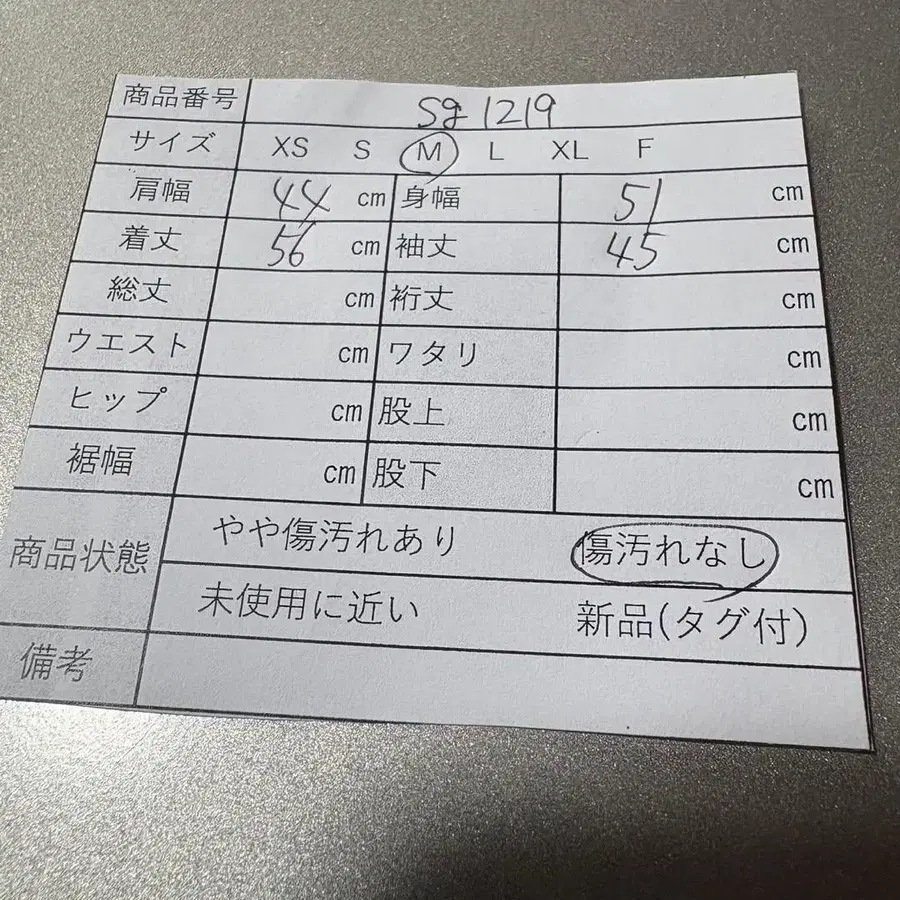 商品番号 Sg 1219
サイズ XS S M L XL F
肩幅 44 cm 身幅 51 cm
着丈 56 cm 袖丈 45 cm
総丈 cm 裄丈 cm
ウエスト cm ワタリ cm
ヒップ cm 股上 cm
裾幅 cm 股下 cm
商品状態 やや傷汚れあり 傷汚れなし
未使用に近い 新品(タグ付)
備考